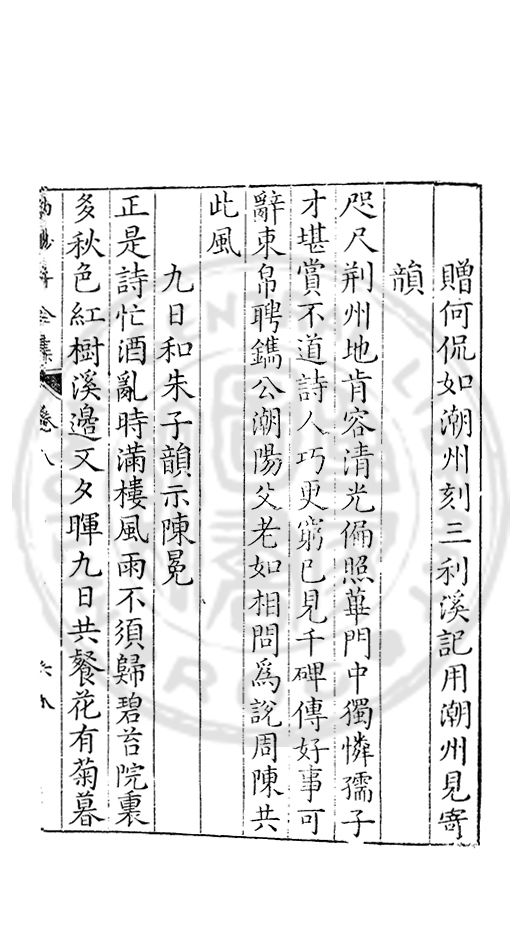 贈何侃如潮州刻三利溪記用潮州見寄
韻
咫尺荆州地肯容清光徧照蓽門中獨憐孺子
才堪賞不道詩人巧更窮已見千碑傳好事可
辭束帛聘鐫公潮陽父老如相問爲說周陳共
此風
九日和朱子韻示陳冕
正是詩忙酒亂時滿樓風雨不須歸碧苔院裏
多秋色紅樹溪邊又夕暉九日共餐花有菊暮
全集
卷八